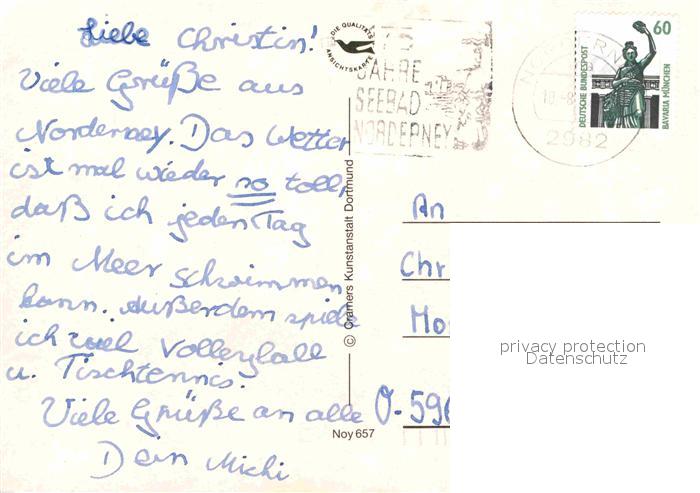 Liebe Christin!
Viele Grüße aus
Norderney. Das Wetter
ist mal wieder so toll,
daß ich jeden Tag
im Meer schwimmen
kann. Außerdem spiele
ich viel Volleyball
u. Tischtennis.
Viele Grüße an alle
Dein Michi
DIE QUALITÄTS
ANSICHTSKARTE
JAHRE
SEEBAD
NORDERNEY
2982
60
DEUTSCHE BUNDESPOST
BAVARIA MÜNCHEN
© Cramers Kunstanstalt Dortmund
Noy 657
An
Chr
O-59
privacy protection
Datenschutz